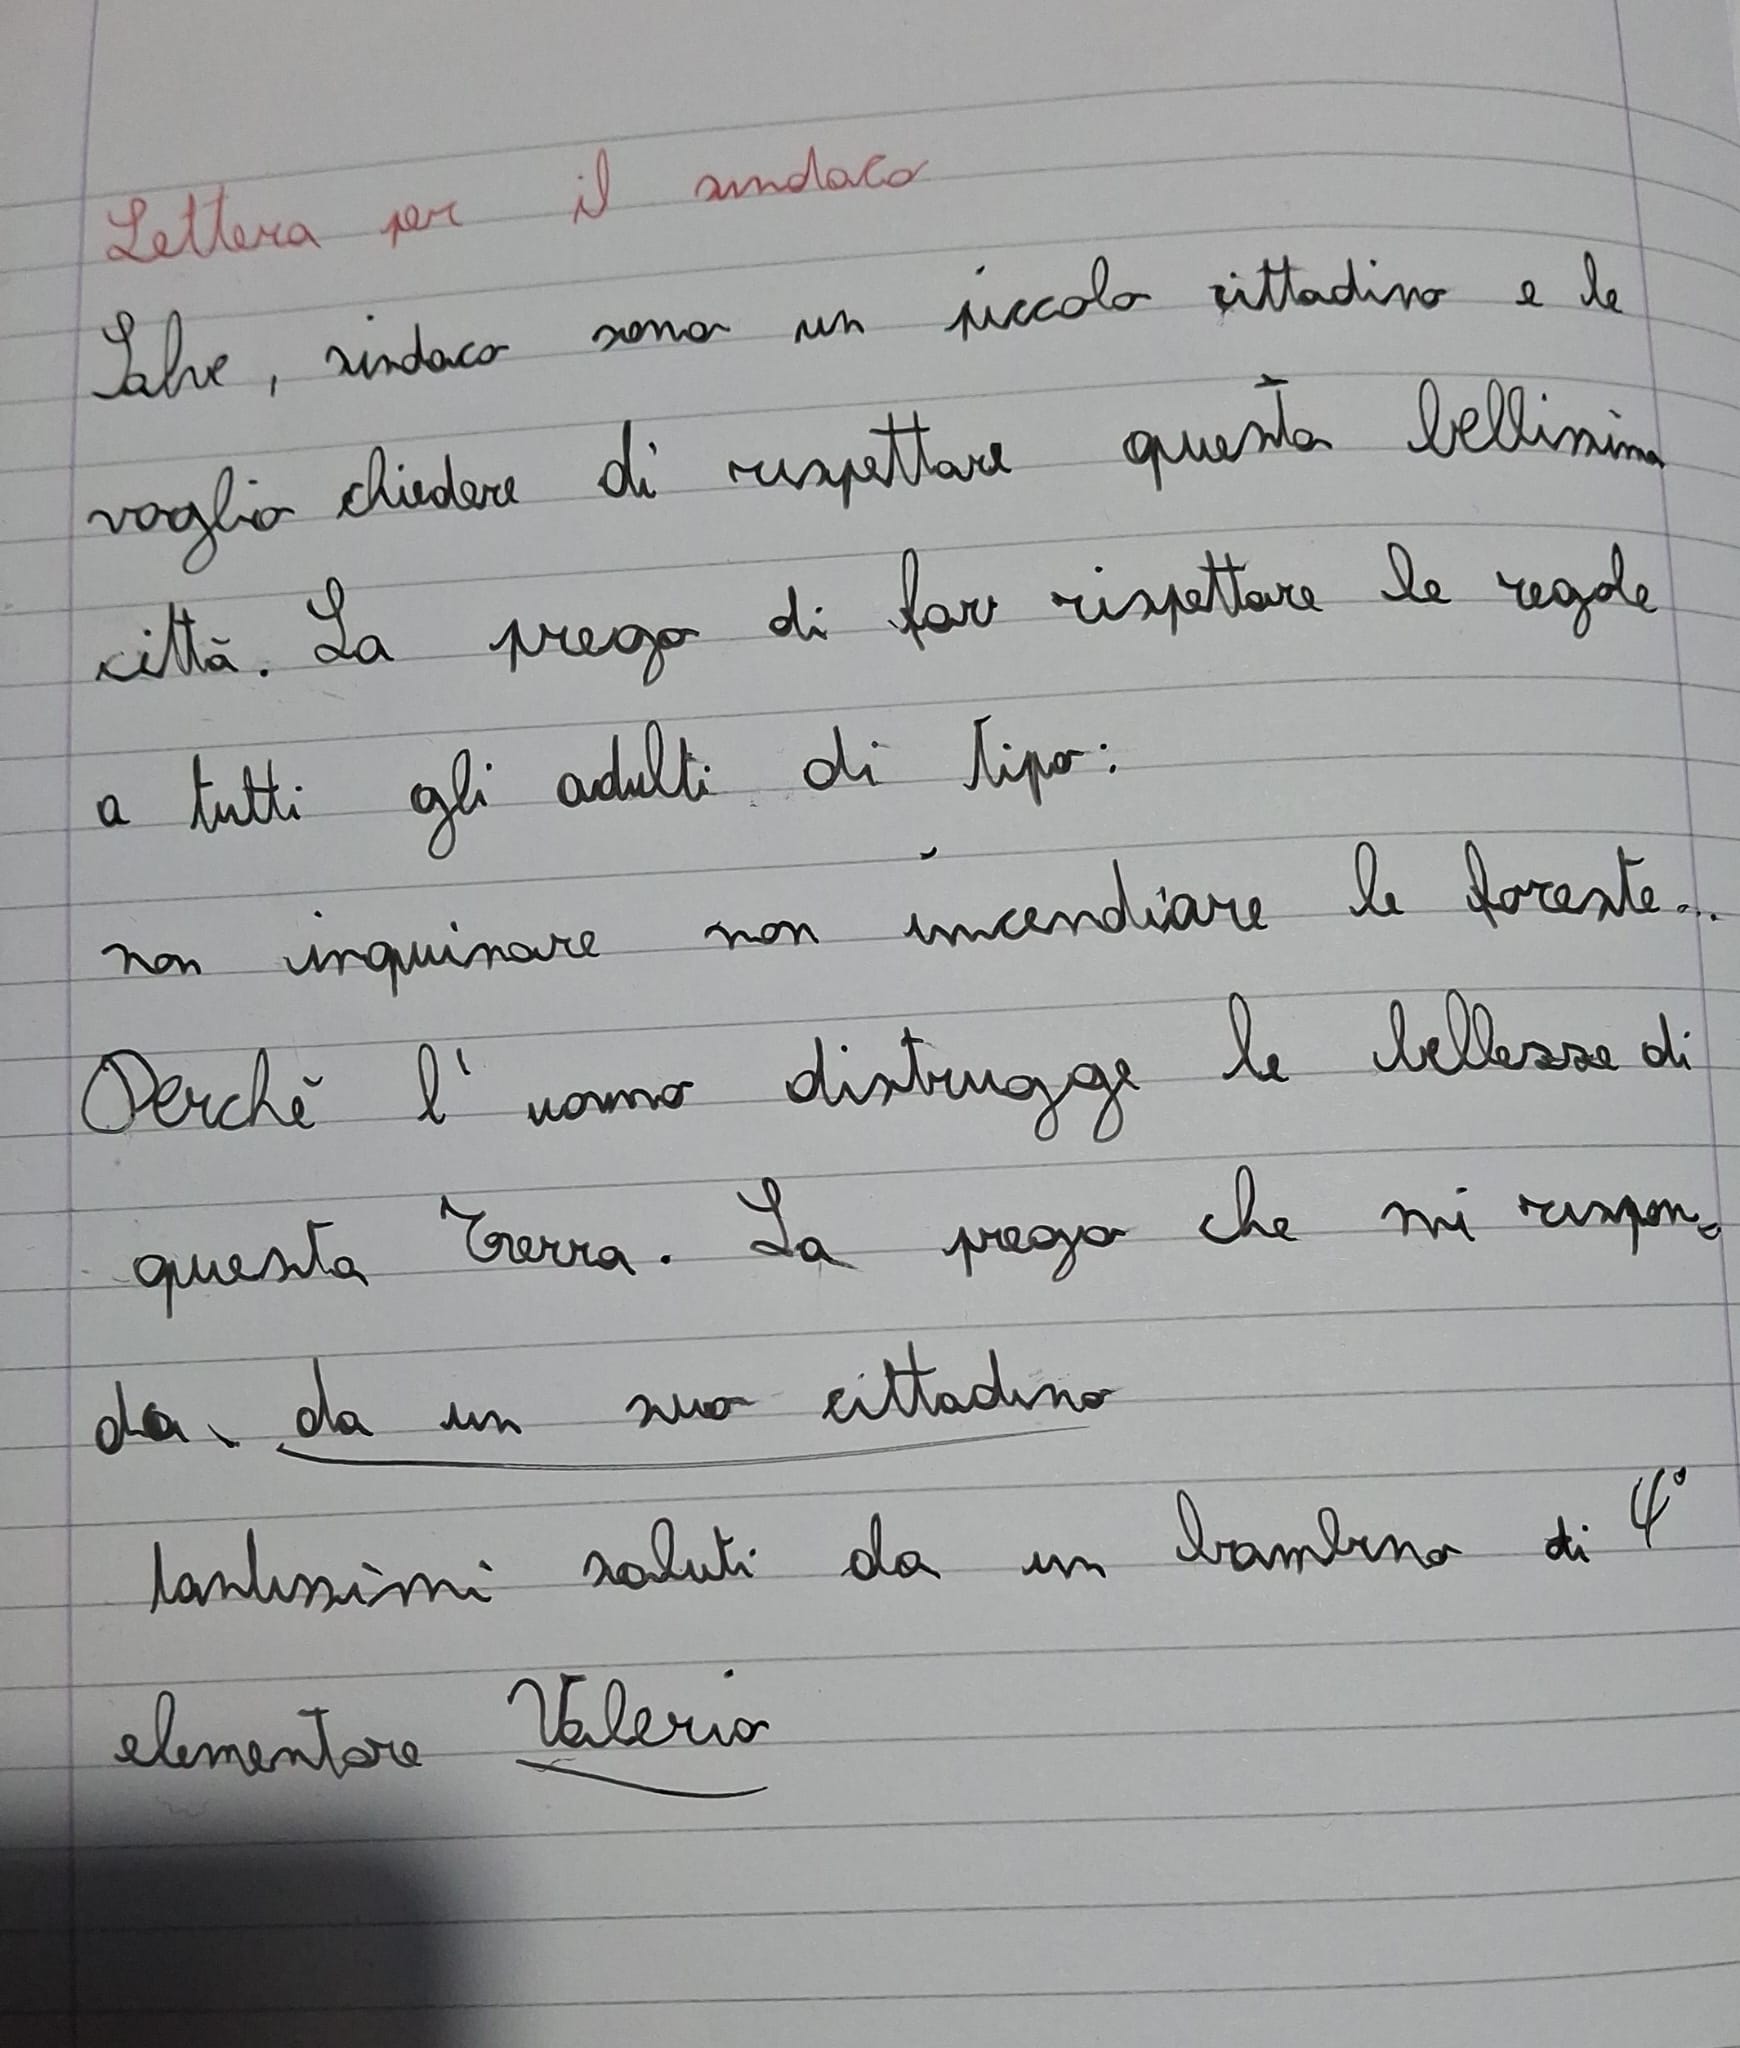 Lettera per il sindaco
Salve, sindaco sono un piccolo cittadino e le
voglio chiedere di rispettare questa bellissima
città. La prego di far rispettare le regole
a tutti gli adulti di tipo:
non inquinare non incendiare le foreste...
Perchè l'uomo distrugge le bellezze di
questa Terra. La prego che mi rispon-
da, da un suo cittadino
tantissimi saluti da un bambino di 4°
elementare Valerio